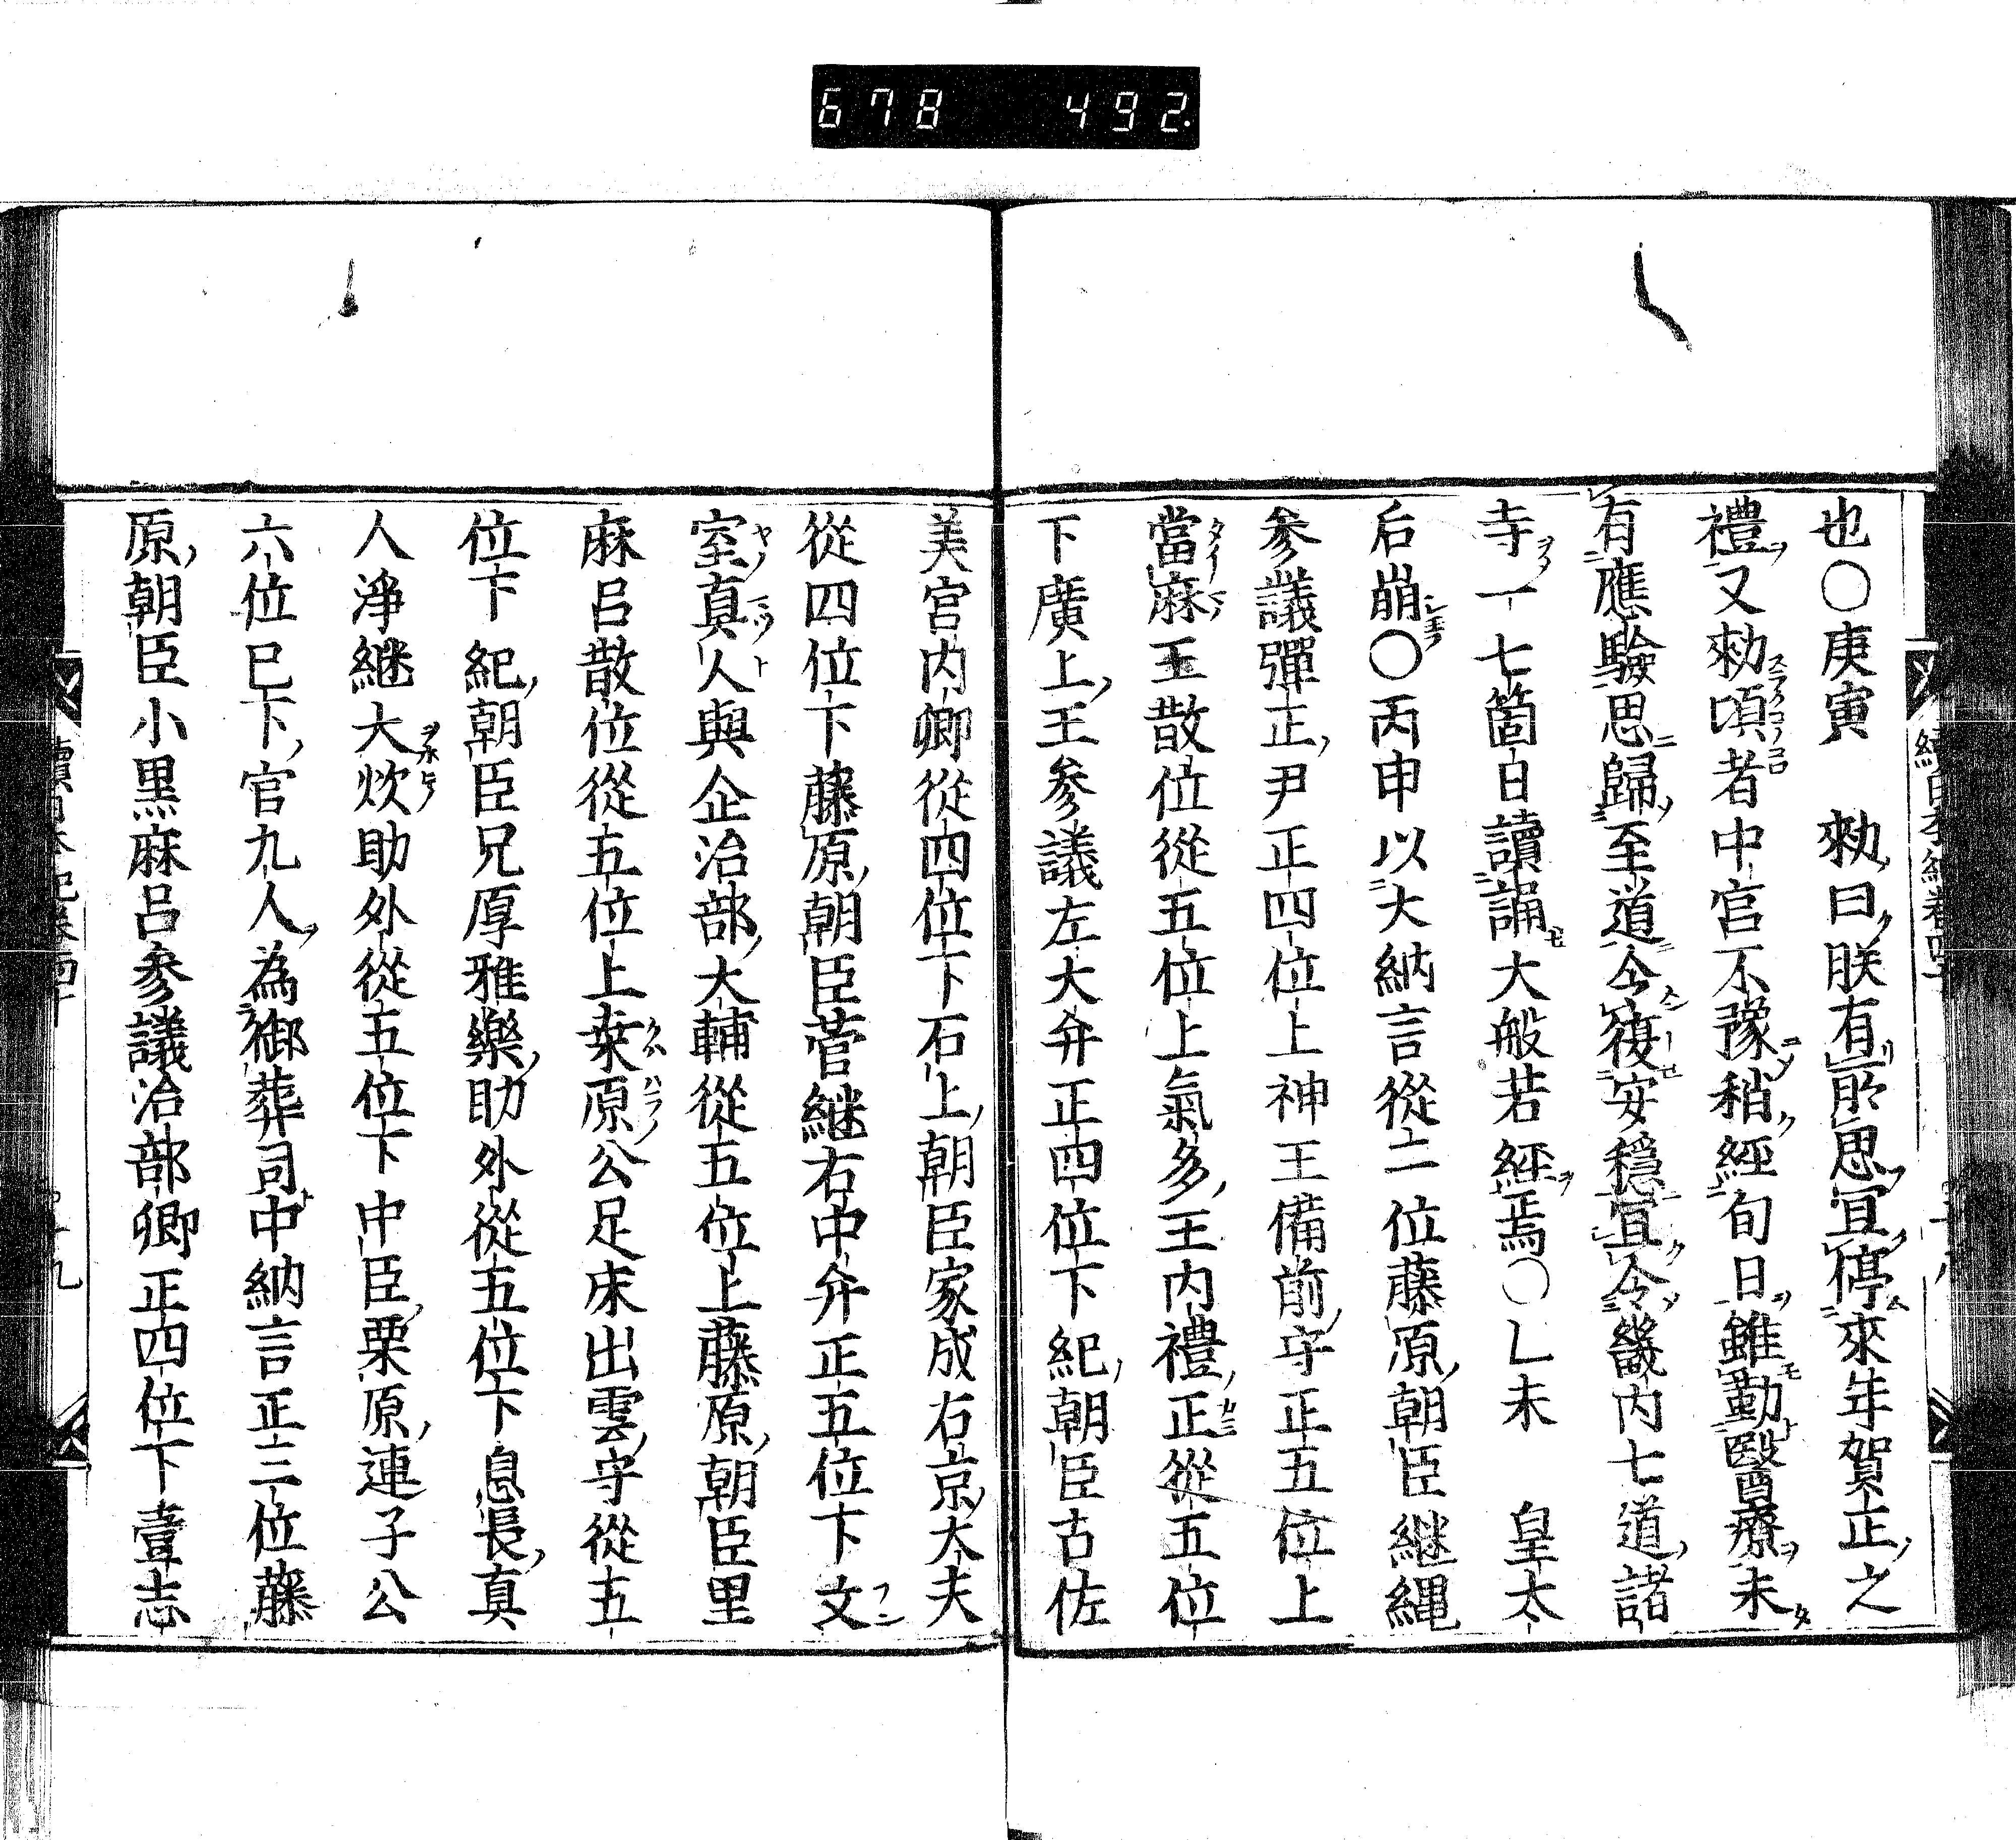 678 492
也○庚寅 勑曰朕有所思宜停來年賀正之
禮又勑頃者中宮不豫稍經旬日雖勤醫療未
有應驗思歸至道令復安穩宜令畿内七道諸
寺一七箇日讀誦大般若經焉○乚未 皇太
后崩○丙申以大納言從二位藤原朝臣継縄
參議彈正尹正四位上神王備前守正五位上
當麻王散位從五位上氣多王内禮正從五位
下廣上王參議左大弁正四位下紀朝臣古佐
美宮内卿從四位下石上朝臣家成右京大夫
從四位下藤原朝臣菅継右中弁正五位下文
室真人與企治部大輔從五位上藤原朝臣里
麻呂散位從五位上桒原公足床出雲守從五
位下紀朝臣兄厚雅樂助外從五位下息長真
人淨継大炊助外從五位下中臣栗原連子公
六位已下官九人為御葬司中納言正三位藤
原朝臣小黒麻呂參議治部卿正四位下壹志